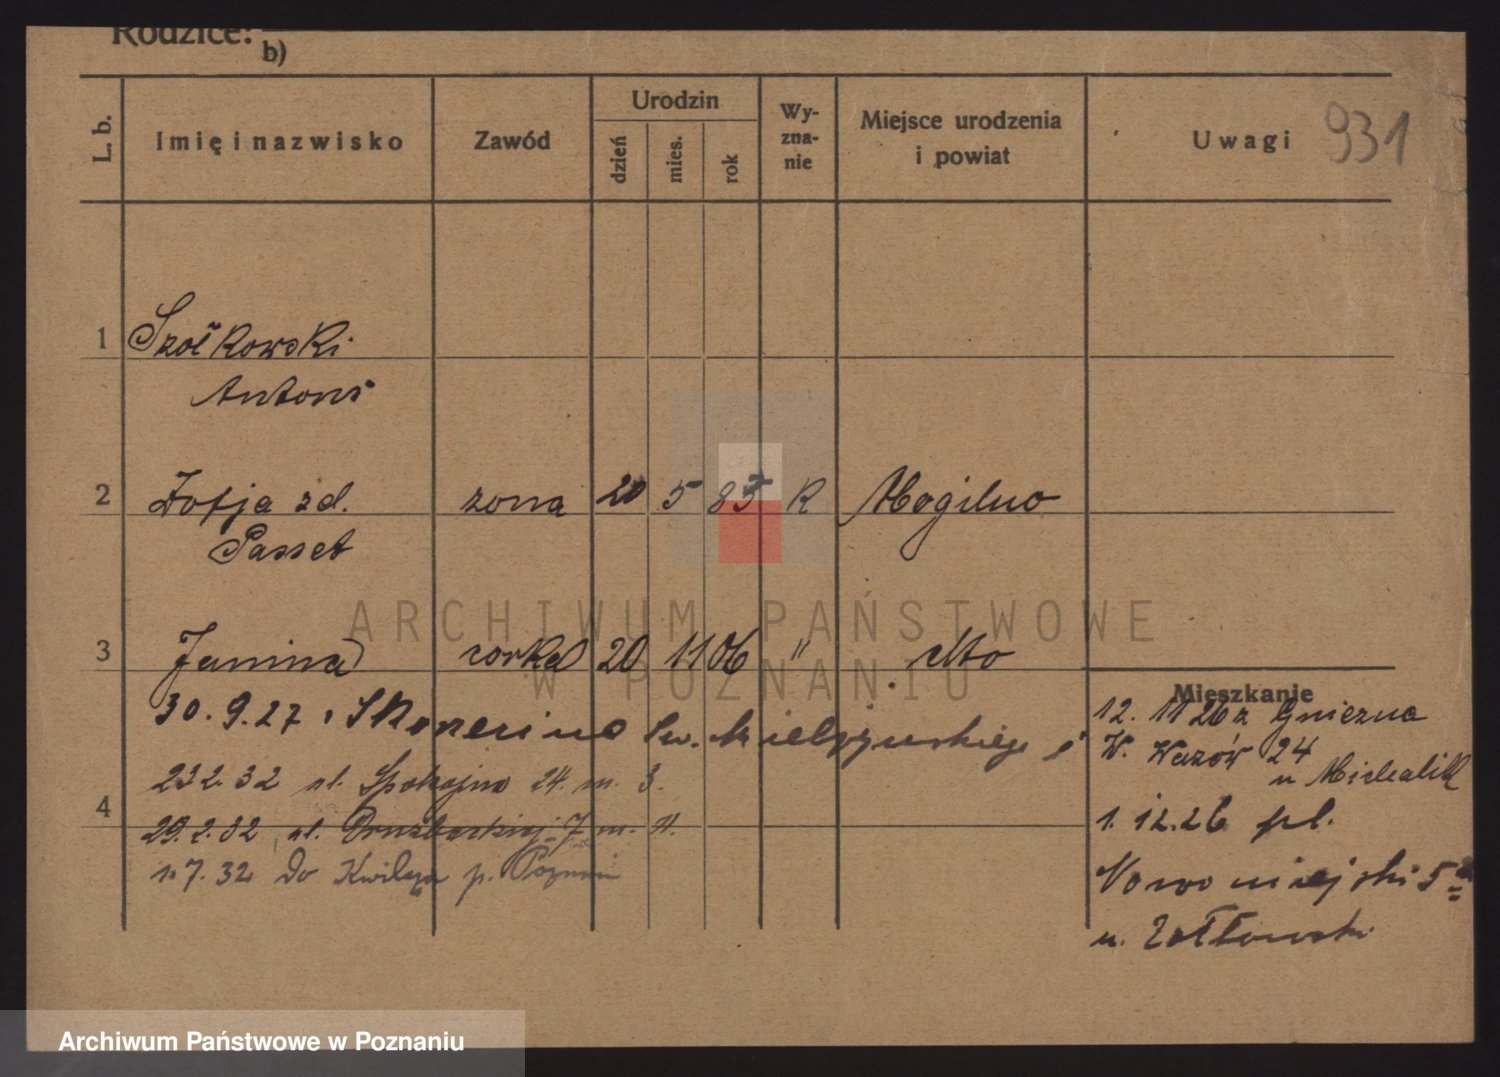 Rodzice:
b)
L. b.
Imię i nazwisko
Zawód
Urodzin
dzień
mies.
rok
Wy-
zna-
nie
Miejsce urodzenia
i powiat
Uwagi
931
1
Szółkowski
Antoni
2 Zofja zd. żona 20 5 85 K Mogilno
Passet
3 Janina corka 20 11 06 " dto
Mieszkanie
30.9.27 Skoneeino Sew. Mielżyńskiego
23 2.32 ul. Spokojna 24. m. 3.
4
29.2.32 ul. Drużbackiej 7 m. 11.
1.7.32 do Kwilcza p. Poznań
12. 11 26 z Gniezna
W. Wazów 24
u Michalik
1.12.26 pl.
Nowomiejski 5
u. Żółtowski
ARCHIWUM PAŃSTWOWE
W POZNANIU
Archiwum Państwowe w Poznaniu